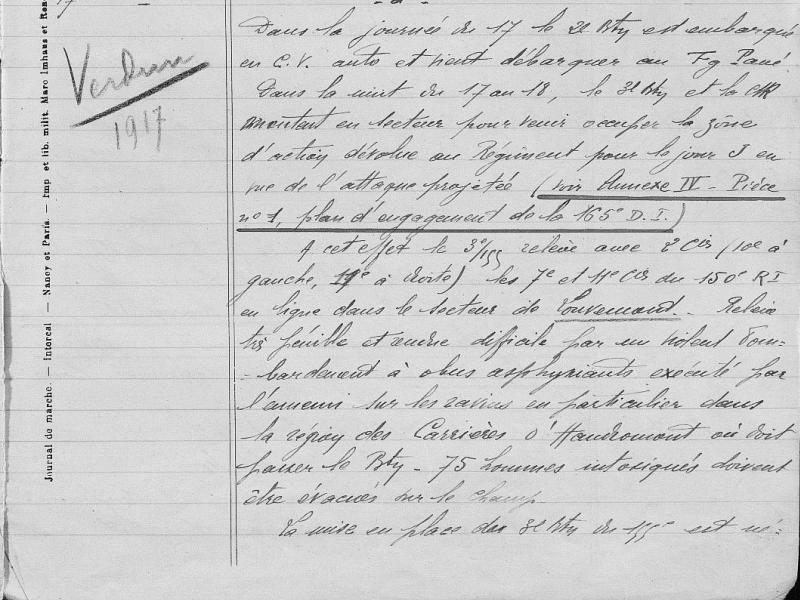 Verdun
1917
Journal de marche. — Intorcal. — Nancy et Paris. — Imp et lib. milit. Marc Imhaus et Ren
Dans la journée du 17 le 2e Btn est embarqué
en C.V. auto et vient débarquer au Fg Pavé
Dans la nuit du 17 au 18, le 3e Btn et la CHR
montent en secteur pour venir occuper la zône
d'action dévolue au Régiment pour le jour J en
vue de l'attaque projetée (voir Annexe IV - Pièce
n°1, plan d'engagement de la 165e D.I.)
A cet effet le 3e/155 relève avec 2 Cies (10e à
gauche, 11e à droite) les 7e et 11e Cies du 150e RI
en ligne dans le secteur de Louvemont. Relève
très pénible et rendue difficile par un violent bom-
-bardement à obus asphyxiants executé par
l'ennemi sur les ravins en particulier dans
la région des Carrières d'Haudromont où doit
passer le Btn - 75 hommes intoxiqués doivent
être évacués sur le champ
La mise en place du 3e Btn du 155e est